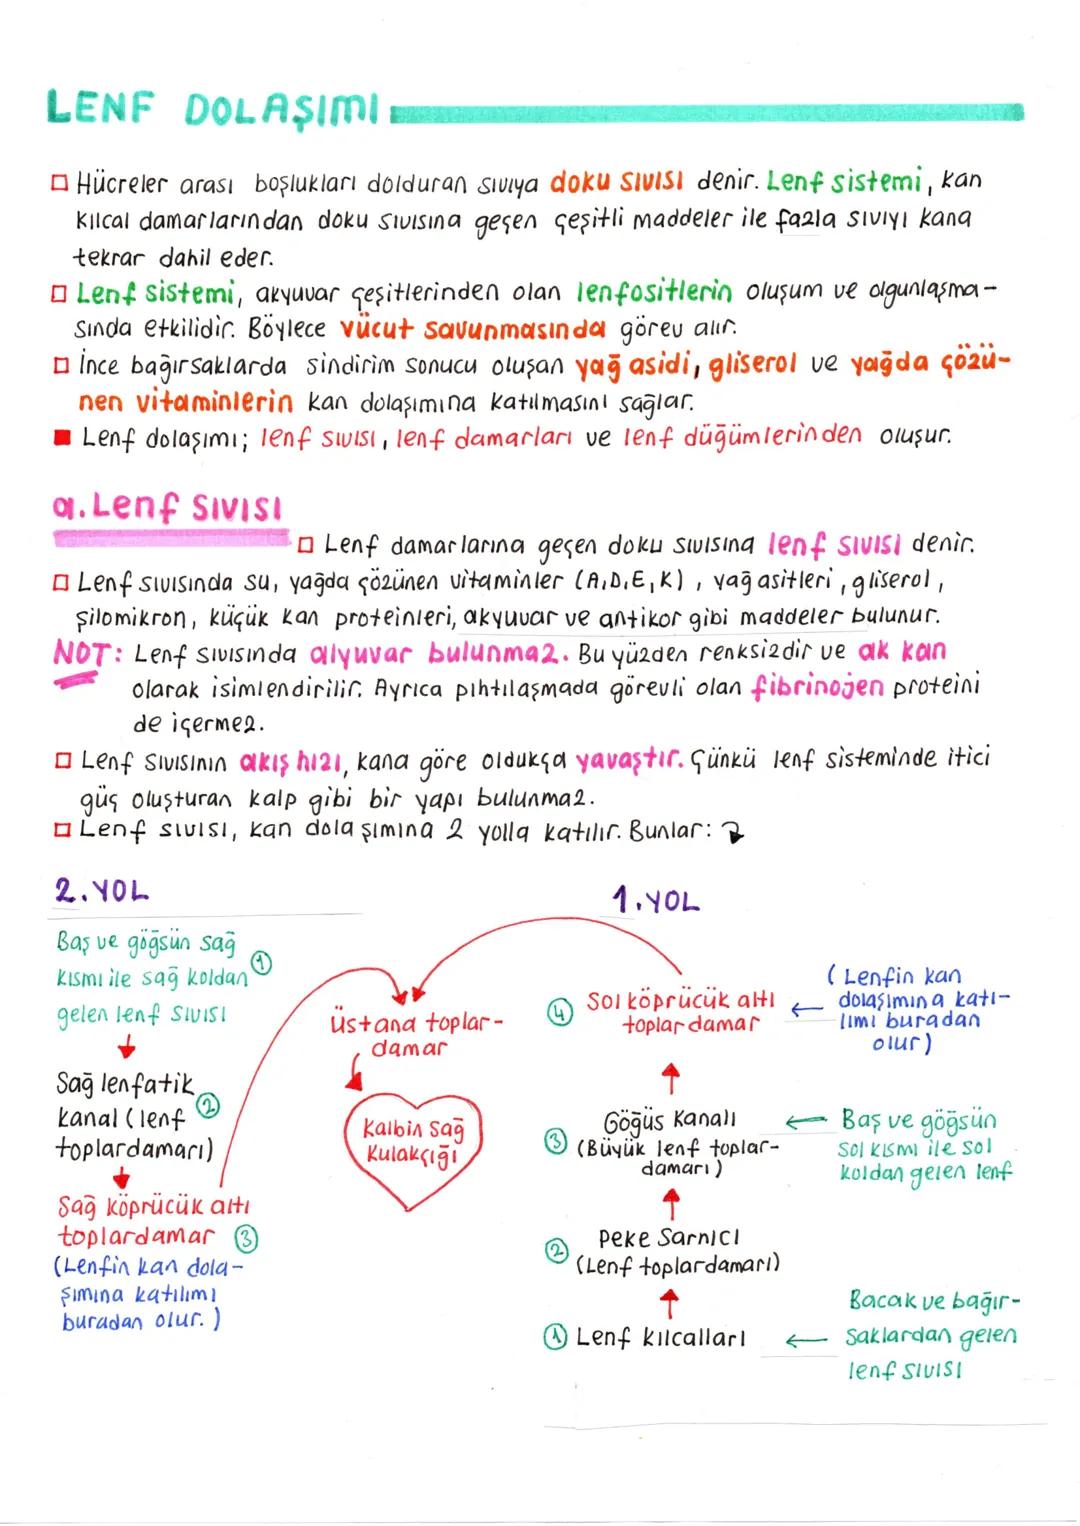 LENF DOLAŞIMI
Hücreler arası boşlukları dolduran sıvıya doku sıvısı denir. Lenf sistemi, kan
kılcal damarlarından doku sıvısına geçen çeşitli maddeler ile fazla sıvıyı kana
tekrar dahil eder.
Lenf sistemi, akyuvar çeşitlerinden olan lenfositlerin oluşum ve olgunlaşma-
sında etkilidir. Böylece vücut savunmasında görev alır.
İnce bağırsaklarda sindirim sonucu oluşan yağ asidi, gliserol ve yağda çözü-
nen vitaminlerin kan dolaşımına katılmasını sağlar.
Lenf dolaşımı; lenf sıvısı, lenf damarları ve lenf düğümlerinden oluşur.
a. Lenf Sıvısı
Lenf damarlarına geçen doku sıvısına lenf sıvısı denir.
Lenf sıvısında su, yağda çözünen vitaminler (A,D,E,K), yağ asitleri, gliserol,
şilomikron, küçük kan proteinleri, akyuvar ve antikor gibi maddeler bulunur.
NOT: Lenf sıvısında alyuvar bulunmaz. Bu yüzden renksizdir ve ak kan
olarak isimlendirilir. Ayrıca pıhtılaşmada görevli olan fibrinojen proteini
de içermez.
Lenf sıvısının akış hızı, kana göre oldukça yavaştır. Çünkü lenf sisteminde itici
güç oluşturan kalp gibi bir yapı bulunmaz.
Lenf sıvısı, kan dolaşımına 2 yolla katılır. Bunlar:
2. YOL
Baş ve göğsün sağ
kısmı ile sağ koldan 1
gelen lenf sıvısı
Sağ lenfatik
kanal (lenf 2
toplardamarı)
Sağ köprücük altı
toplardamar 3
(Lenfin kan dola-
şımına katılımı
buradan olur.)
Üstana toplar-
damar
Kalbin Sağ
Kulakçığı
1. YOL
4 Sol köprücük altı
toplardamar
(Lenfin kan
dolaşımına katı-
lımı buradan
olur)
3 Göğüs Kanalı
(Büyük lenf toplar-
damarı)
Baş ve göğsün
sol kısmı ile sol
koldan gelen lenf
2 Peke Sarnıcı
(Lenf toplardamarı)
1 Lenf kılcalları
Bacak ve bağır-
saklardan gelen
lenf sıvısı